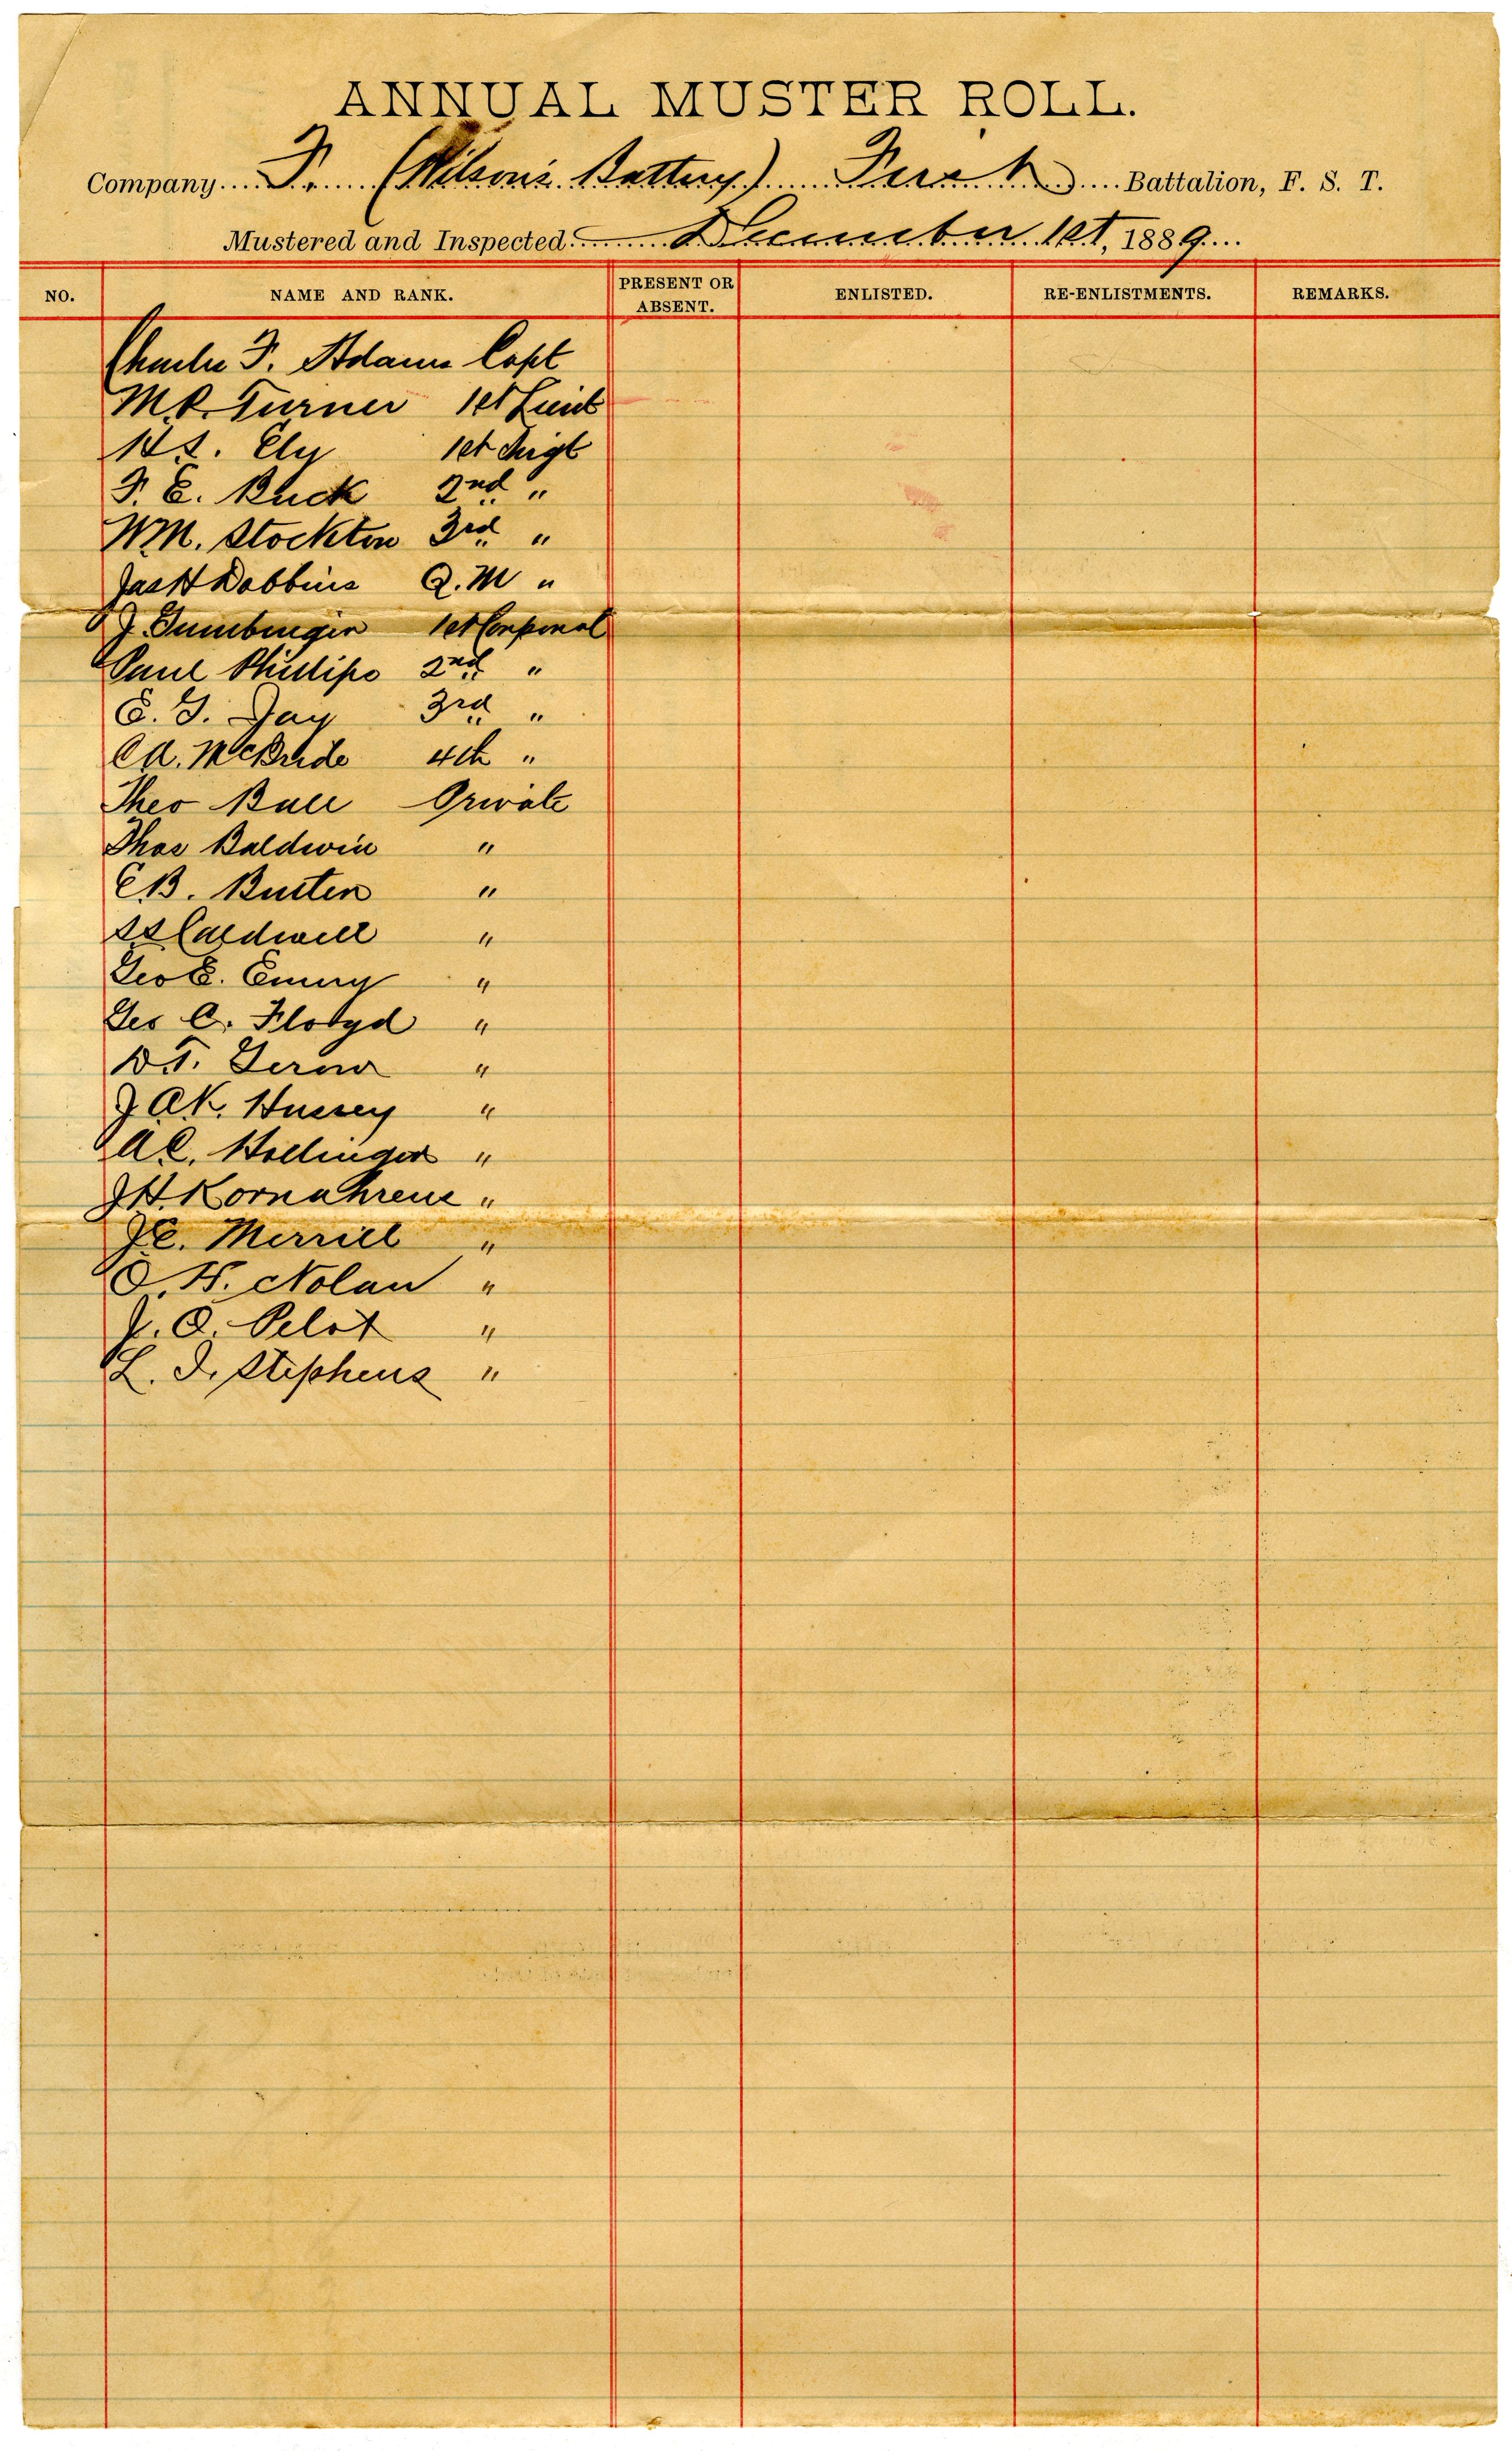 ANNUAL MUSTER ROLL.
Company F. (Wilson's Battery) First Battalion, F. S. T.
Mustered and Inspected December 1st, 1889
NO. NAME AND RANK. PRESENT OR ABSENT. ENLISTED. RE-ENLISTMENTS. REMARKS.
Charles F. Adams Capt
M.R. Turner 1st Lieut
H.S. Ely 1st Sergt
F. E. Buck 2nd "
WM. Stockton 3rd "
Jas H Dobbins Q.M "
J. 1st Corporal
Paul Phillips 2nd "
E. G. Jay 3rd "
Ed. McBride 4th "
Theo Ball Private
Thos Baldwin "
C.B. Buster "
SS Caldwell "
Geo E. Emery "
Geo C. Floyd "
D.T. Gerow "
J A K. Hussey "
A C. Hollinger "
J H. Kornahrens "
J E. Merrill "
O. H. Nolan "
J. O. Pelot "
L. I. Stephens "